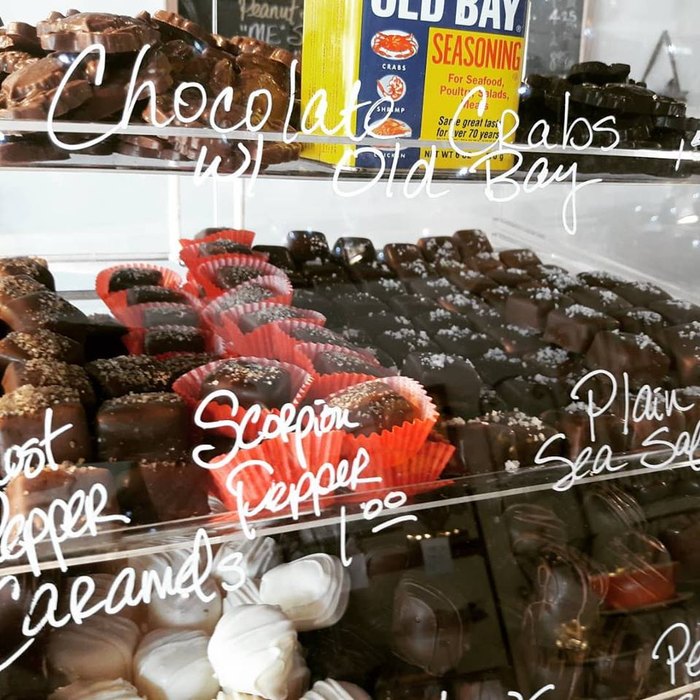 Peanut
OLD BAY
SEASONING
For Seafood,
Poultry, Salads,
Meats
CRABS
SHRIMP
CHICKEN
Same great taste
for over 70 years
NET WT 6 OZ
Chocolate Crabs
w/ Old Bay
Scorpion
Pepper
1.00
Plain
Sea Sal
Pepper
Caramels